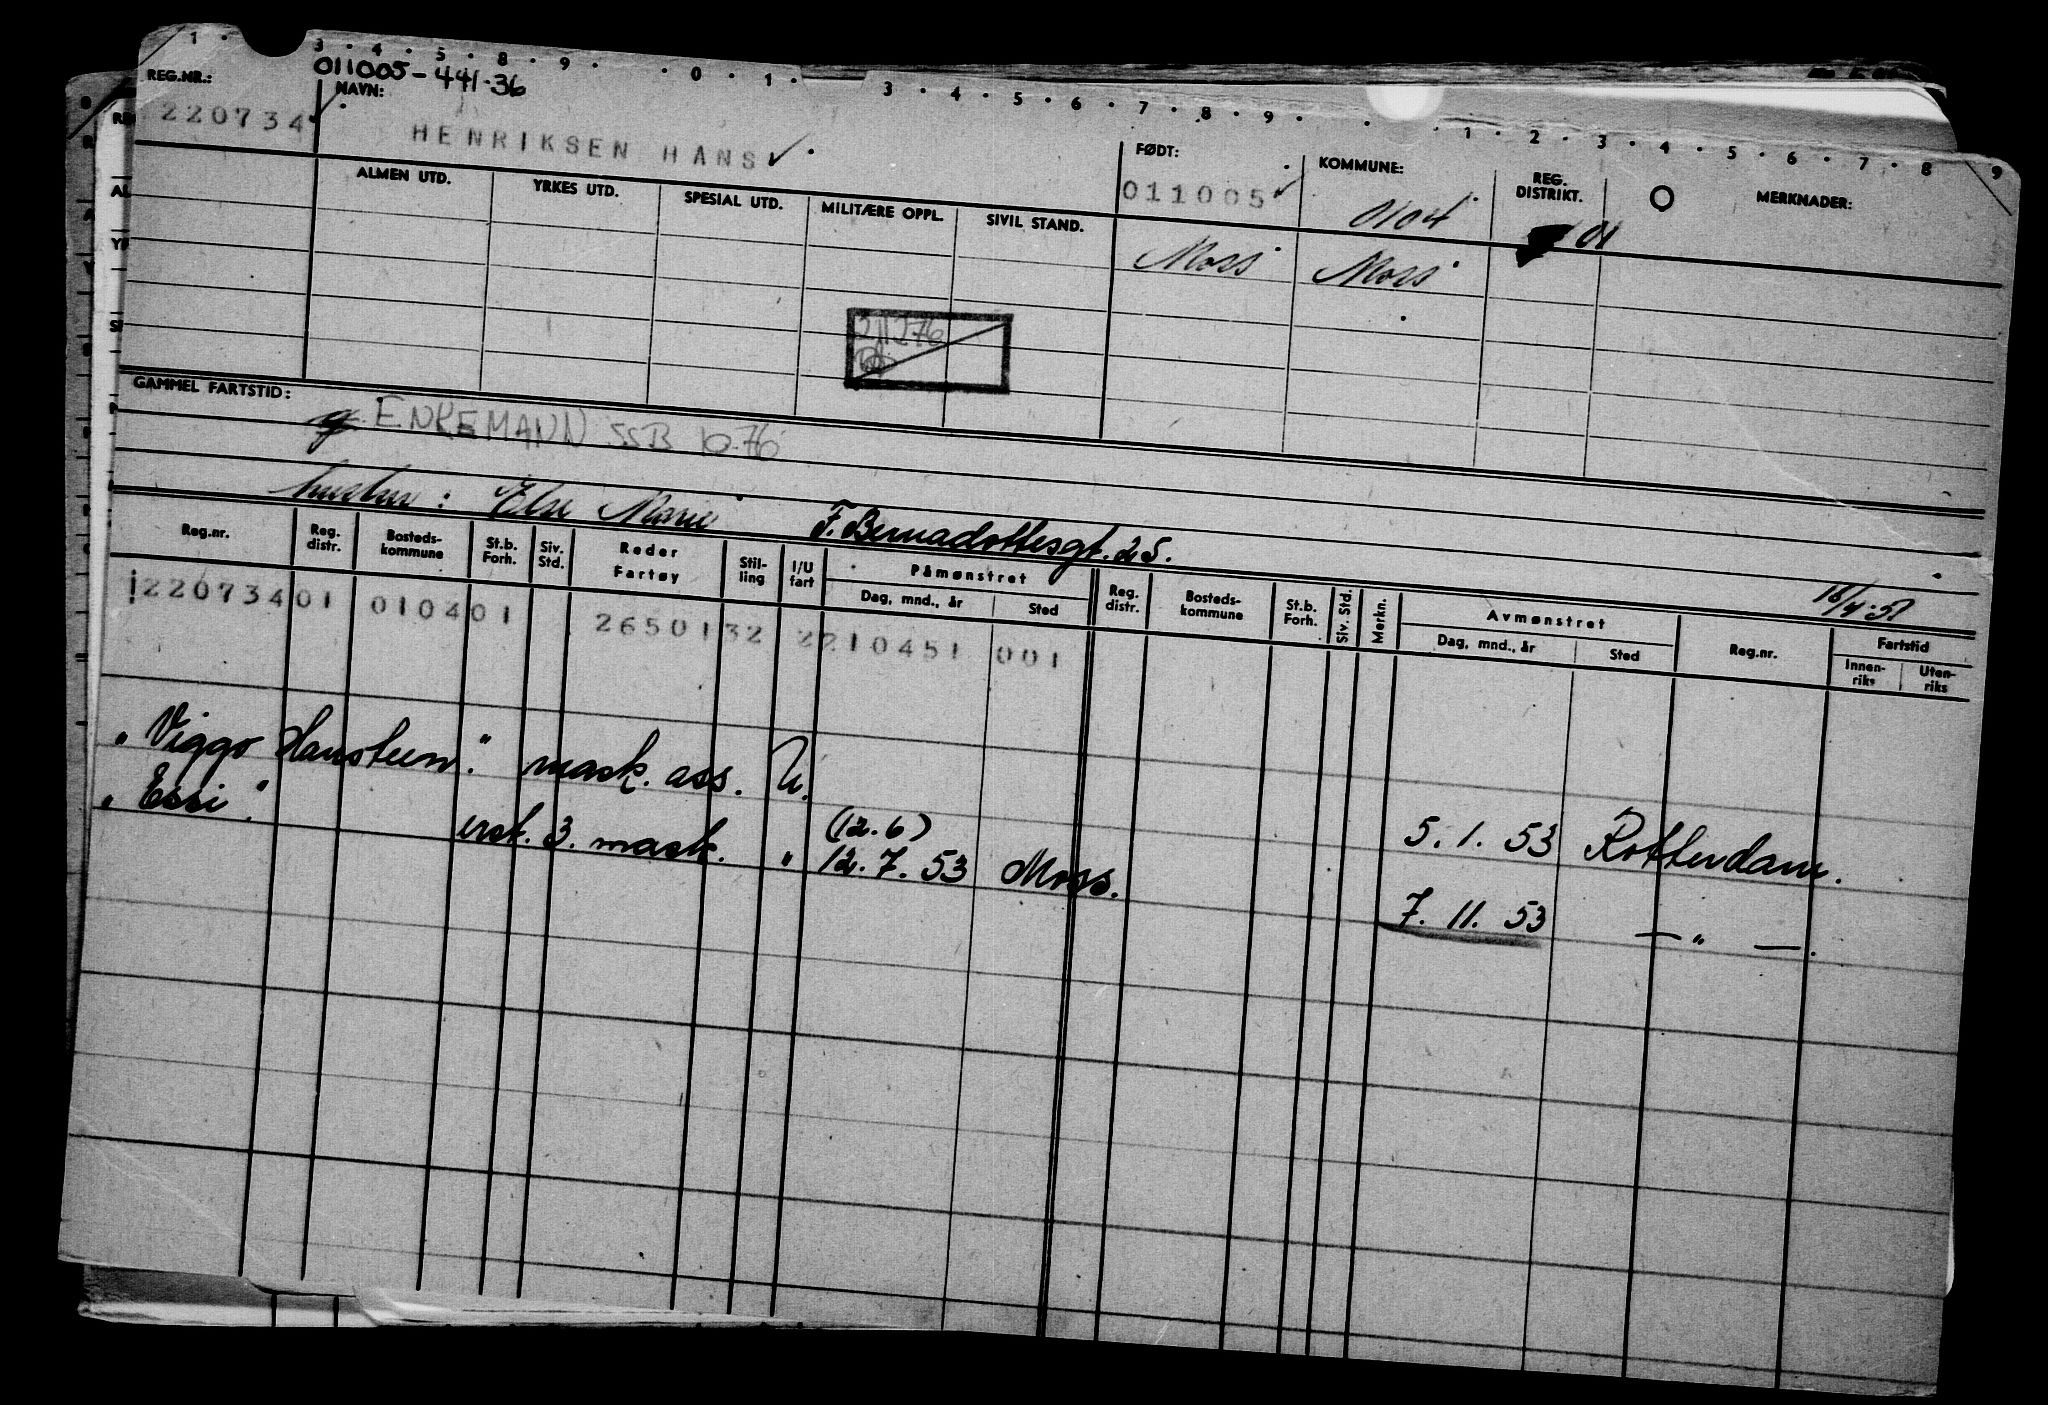 1 · 3 · 4 · 5 · 8 · 9 · · 0 · 1 · 3 · 4 · 5 · 6 · 7 · 8 · 9 · · 1 · 2 · 3 · 4 · 5 · 6 · 7 · 8 · 9
011005-441·36
REG.NR.: NAVN: FØDT: KOMMUNE: REG. DISTRIKT. O MERKNADER:
220734 HENRIKSEN HANS ✓ 011005 ✓ 0104 01
ALMEN UTD. YRKES UTD. SPESIAL UTD. MILITÆRE OPPL. SIVIL STAND.
Moss Moss
211276
GAMMEL FARTSTID:
g. ENKEMANN SSB 10-76
hustru: Else Marie F. Bernadottesgt. 25.
18/4-51
Reg.nr. Reg. distr. Bosteds-kommune St.b. Forh. Siv. Std. Reder Fartøy Stil-ling I/U fart Påmønstret Dag, mnd., år Sted Reg. distr. Bosteds-kommune St.b. Forh. Siv. Std. Merkn. Avmønstret Dag, mnd., år Sted Reg.nr. Fartstid Innen-riks Uten-riks
220734 01 0104 01 2650132 2210451 001
"Viggo Hansteen." mask. ass. U. 5. 1. 53 Rotterdam.
(12.6)
"Essi". erst. 3. mask. " 12. 7. 53 Moss. 7. 11. 53 — " —.